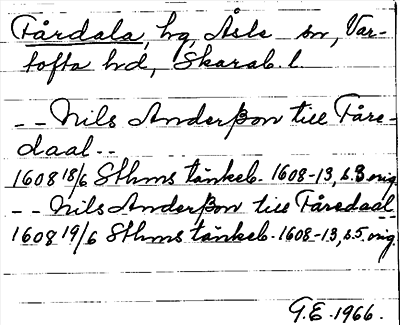 Fårdala, hg, Åsle sn, Var-
tofta hd, Skarab. l.
-- Nils Anderßon till Fåre-
daal --
1608 18/6 Sthms tänkeb. 1608-13, s. 3 orig.
-- Nils Anderßon till Fåredaal
1608 19/6 Sthms tänkeb. 1608-13, s. 5 orig.
G.E. 1966.